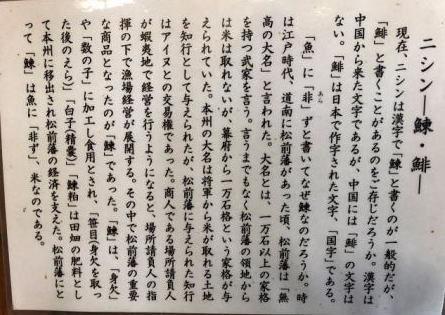 ニシン―鰊・鯡―
現在、ニシンは漢字で「鰊」と書くのが一般的だが、
「鯡」と書くことがあるのをご存じだろうか。漢字は
中国から来た文字であるが、中国には「鯡」の文字は
ない。「鯡」は日本で作字された文字、「国字」である。
「魚」に「非」ずと書いてなぜ鯡なのだろうか。時
は江戸時代、道南に松前藩があった頃、松前藩は「無
高の大名」と言われた。大名とは、一万石以上の家格
を持つ武家を言う。言うまでもなく松前藩の領地から
は米は取れないが、幕府から一万石格という家格が与
えられていた。本州の大名は将軍から米が取れる土地
を知行として与えられたが、松前藩に与えられた知行
はアイヌとの交易権であった。商人である場所請負人
が蝦夷地で経営を行うようになると、場所請負人の指
揮の下で漁場経営が展開する。その中で松前藩の重要
な商品となったのが「鰊」であった。「鰊」は、「身欠」
や「数の子」に加工し食用とされ、「笹目（身欠を取っ
た後のえら）」「白子（精嚢）」「鰊粕」は田畑の肥料とし
て本州に移出され松前藩の経済を支えた。松前藩にと
って「鰊」は魚に「非ず」、米なのである。